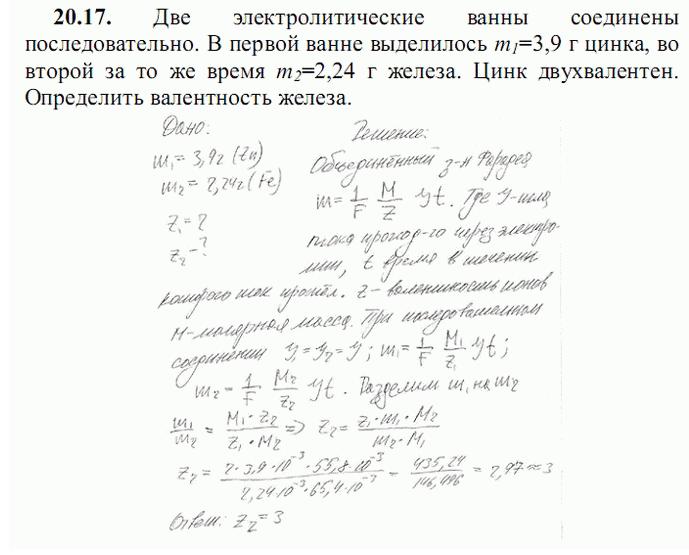 20.17. Две электролитические ванны соединены
последовательно. В первой ванне выделилось m1=3,9 г цинка, во
второй за то же время m2=2,24 г железа. Цинк двухвалентен.
Определить валентность железа.
Дано:
m1 = 3,9г (Zn)
m2 = 2,24г (Fe)
z1 = 2
z2 - ?
Решение:
Объединённый з-н Фарадея
m = 1/F M/Z yt. Где y - сила
тока проход-го через электро-
лит, t время в течении
которого ток прошёл. z - валентность ионов
M - молярная масса. При последовательном
соединении y1 = y2 = y; m1 = 1/F M1/z1 yt;
m2 = 1/F M2/z2 yt. Разделим m1 на m2
m1/m2 = M1·z2/z1·M2 => z2 = z1·m1·M2/m2·M1
z2 = 2·3,9·10⁻³·55,8·10⁻³/2,24·10⁻³·65,4·10⁻³ = 435,24/146,496 = 2,97 ≈ 3
Ответ: z2 = 3